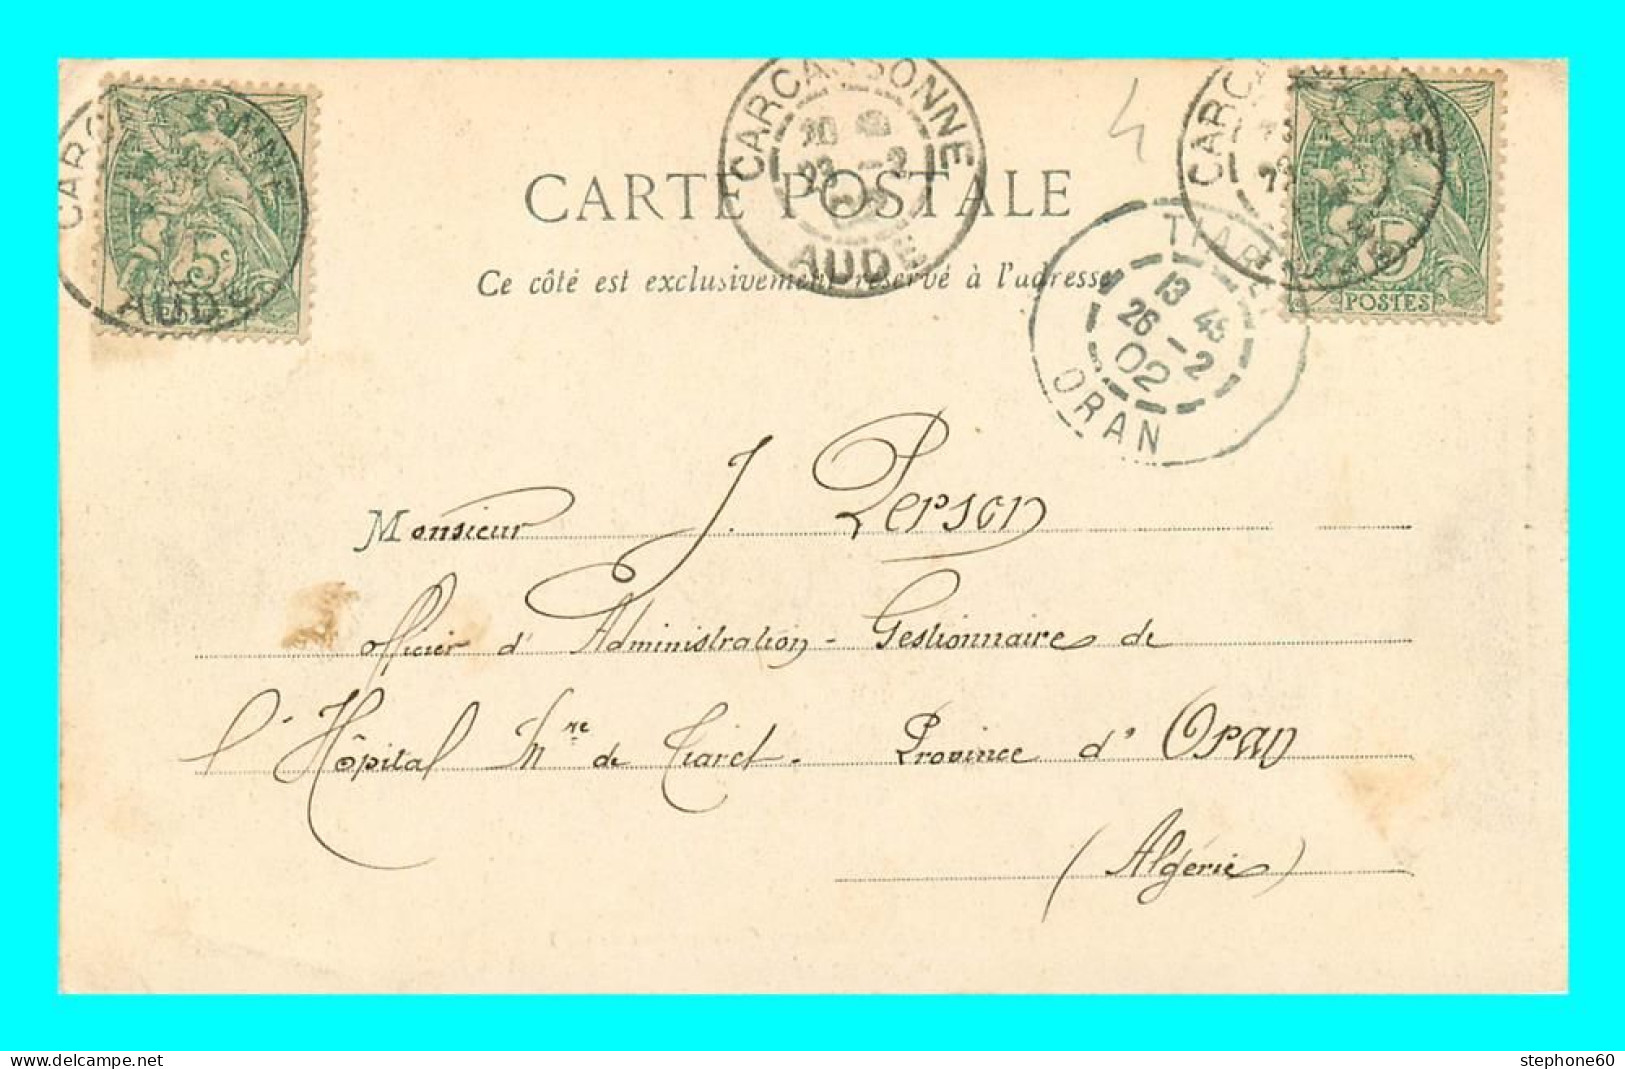 CARCASSONNE
AUDE
CARTE POSTALE
Ce côté est exclusivement réservé à l'adresse
TIARET
13 45
26 - 2
02
ORAN
5c
POSTES
5
POSTES
Monsieur J. Person
Officier d'Administration - Gestionnaire de
l'Hôpital Mre de Tiaret - Province d'Oran
(Algérie)
www.delcampe.net
stephone60